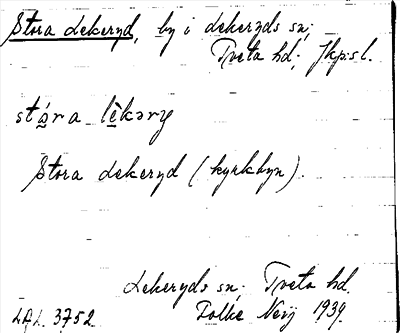 Stora Lekeryd, by i Lekeryds sn;
Tveta hd; Jkp:sl.
stó̱ra lè̱kəry
Stora Lekeryd (kyrkbyn).
Lekeryds sn; Tveta hd.
LAL. 3752. Folke Neij 1939.